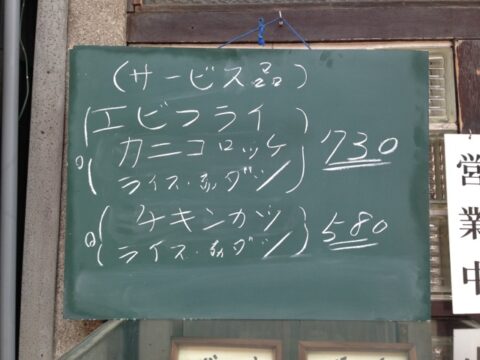 (サービス品)
エビフライ
カニコロッケ 730
ライス・みそダシ
チキンカツ 580
ライス・みそダシ
営業中